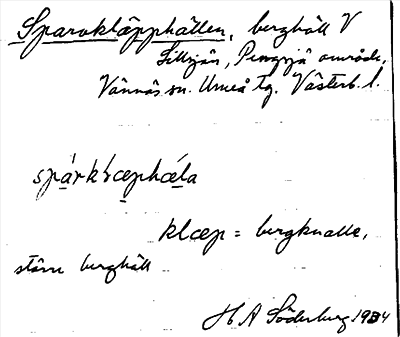 Sparvkläpphällen, berghäll V
Lillsjön, Pengsjö område,
Vännäs sn. Umeå tg. Västerb. l.
spárkłæphǽla
klæp = bergknalle,
större berghäll
H A Söderberg 1934